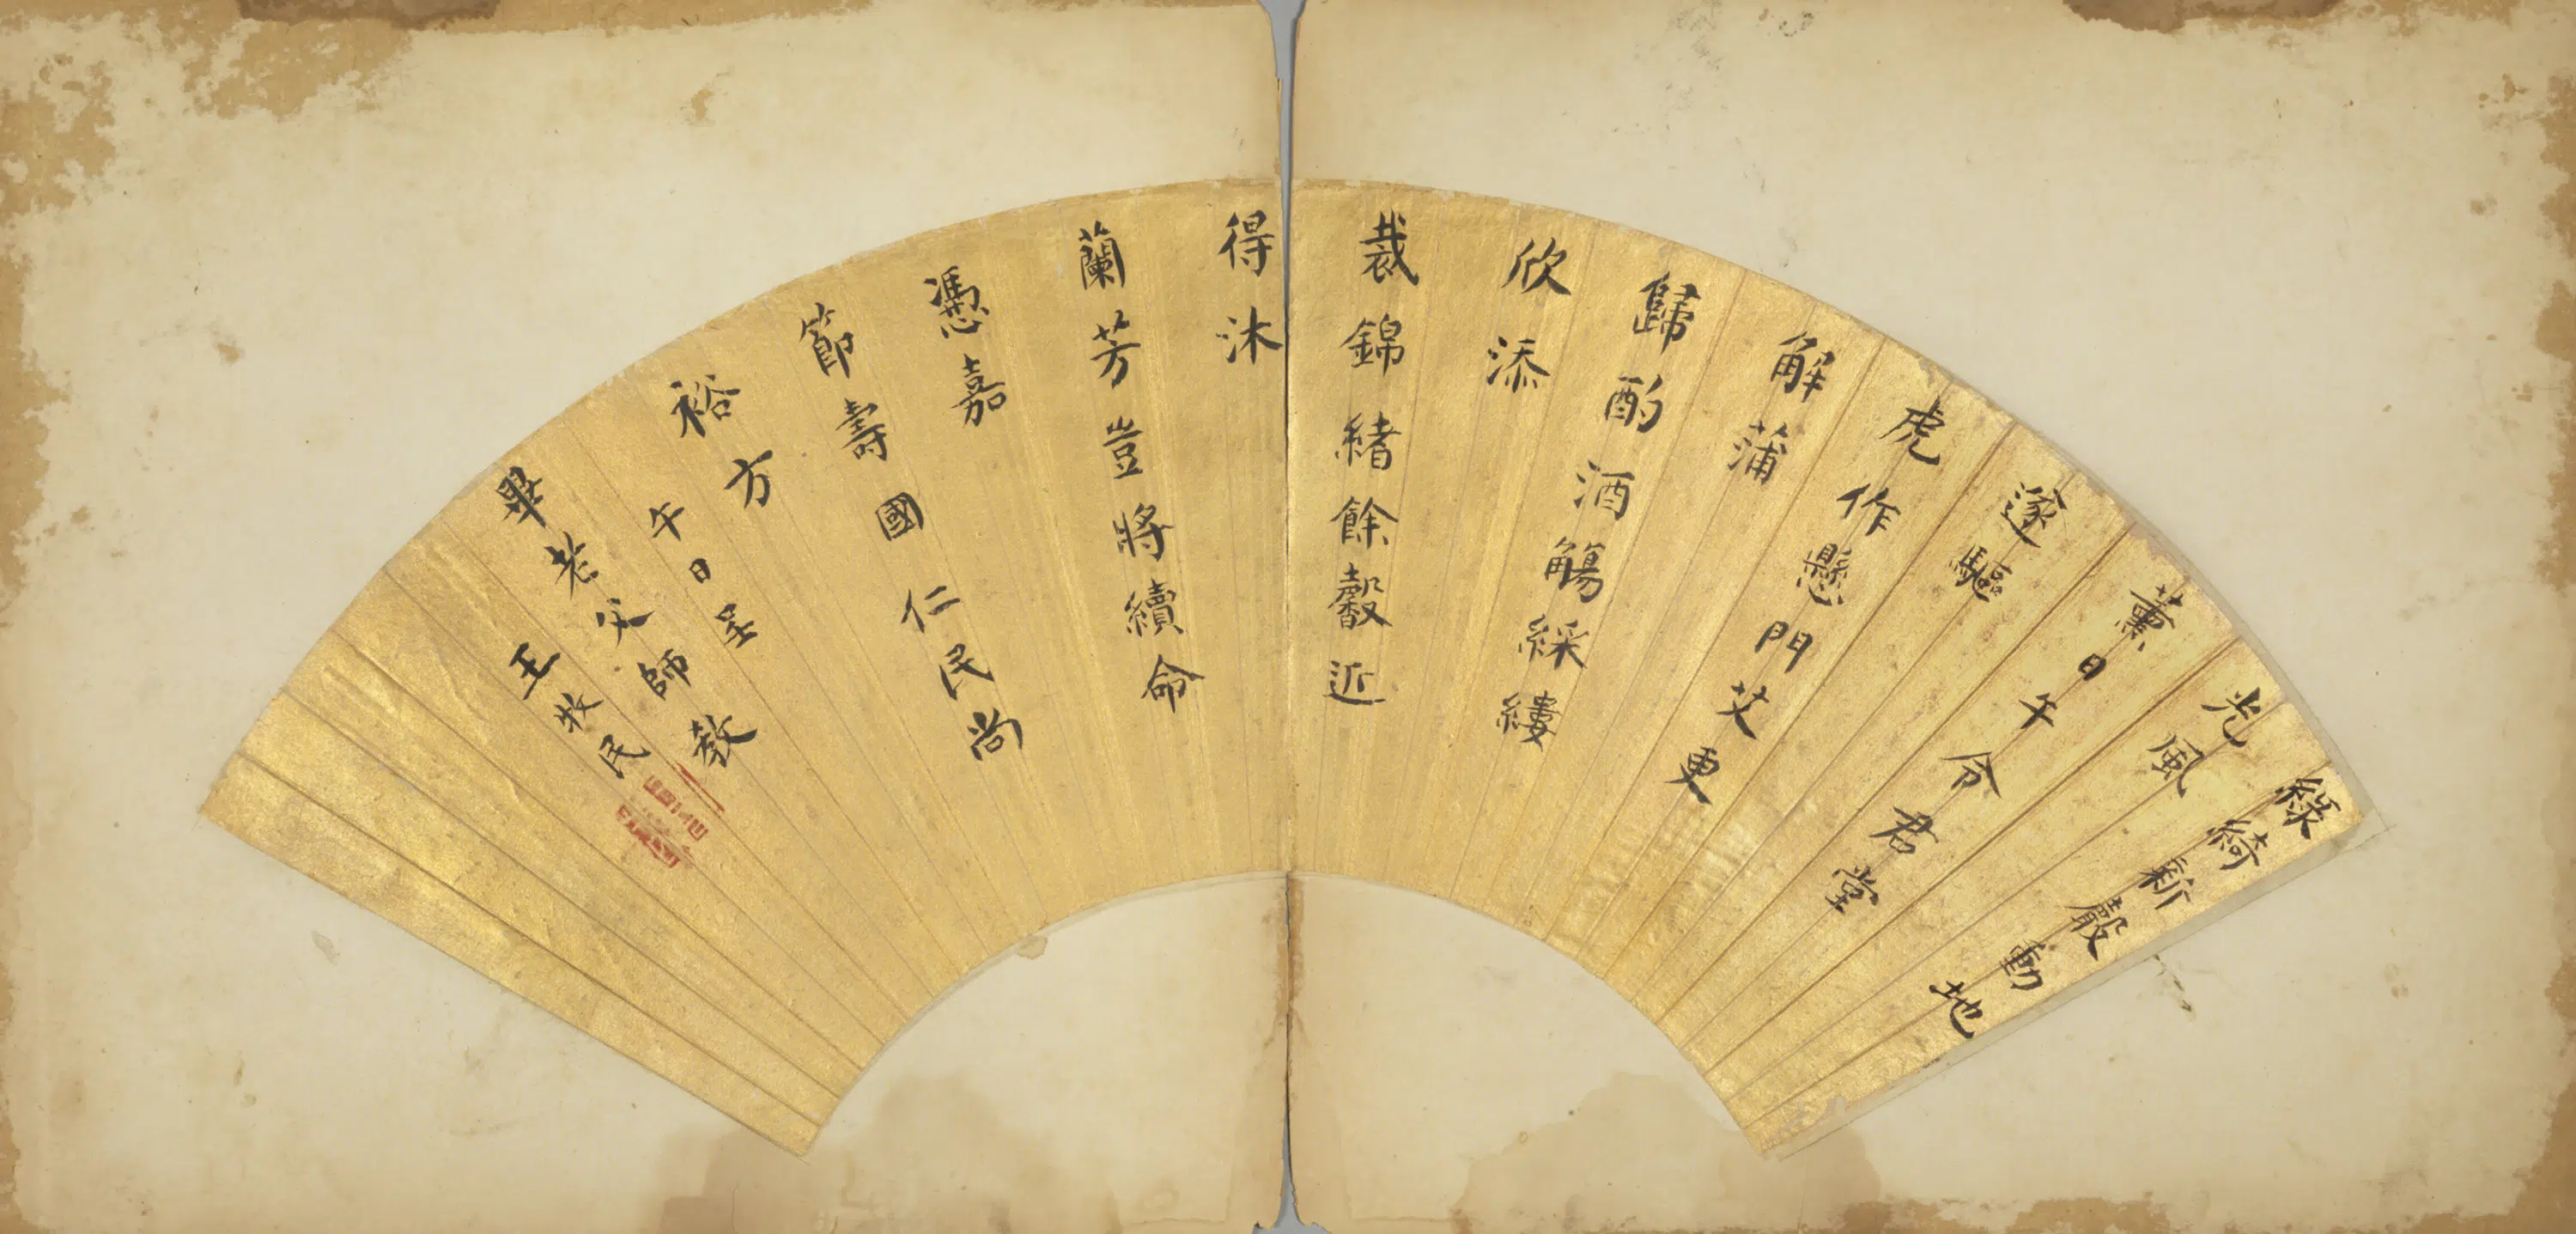 綠綺新嚴動地
光風
薰日午令君堂
逐驅
虎作懸門艾更
解蒲
歸酌酒觴綵縷
欣添
裁錦緒餘馨近
得沐
蘭芳豈將續命
憑嘉
節壽國仁民尚
裕方
午日呈
畢老父師教
王牧民